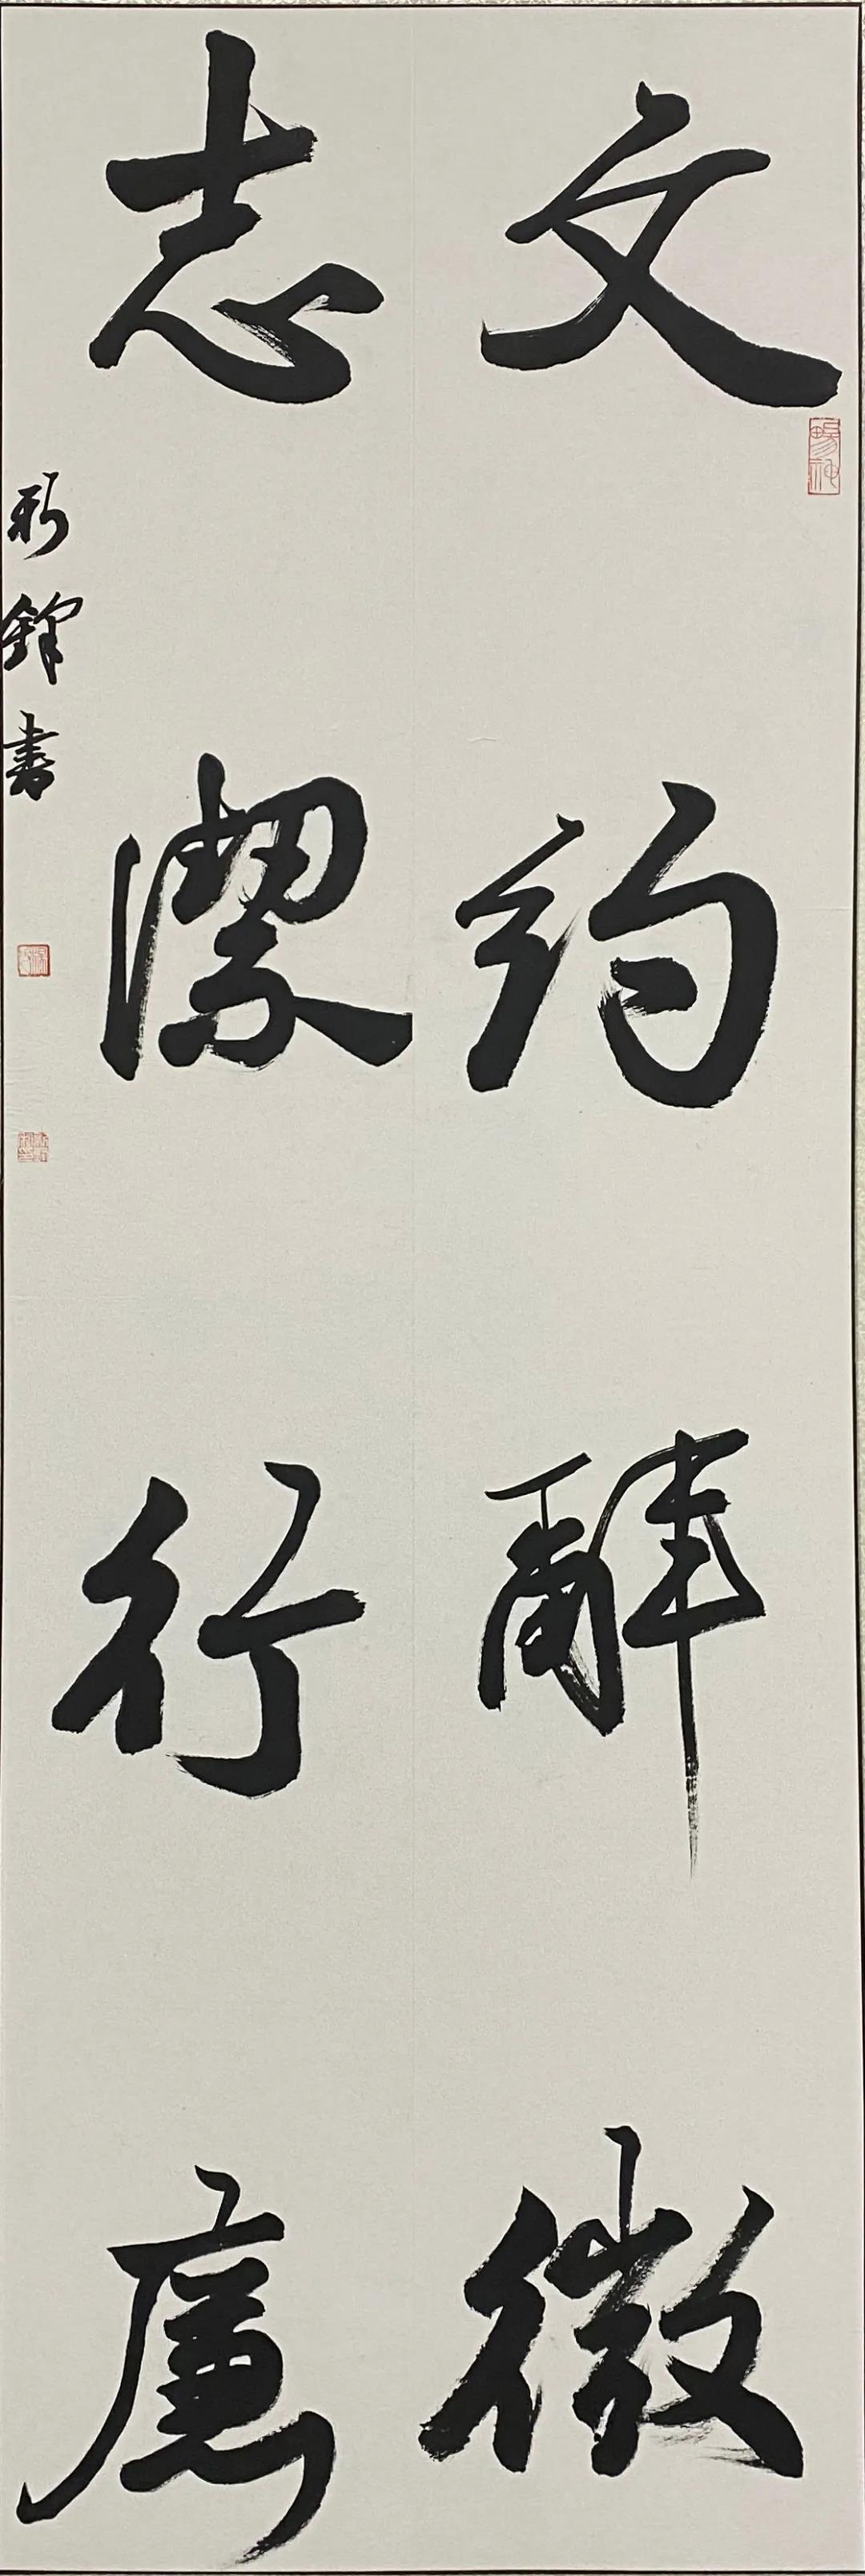 文約辭微
志潔行廉
書